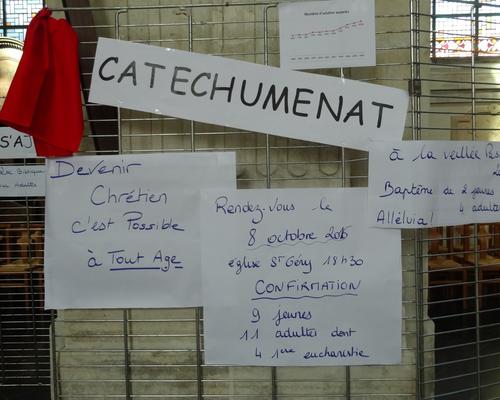 CATECHUMENAT
S'AJ
Devenir
Chrétien
c'est Possible
à Tout Age
Rendez-vous le
8 octobre
église St Géry 18h30
CONFIRMATION
9 jeunes
11 adultes dont
4 1ère eucharistie
à la veillée
Baptême de 2 jeunes
4 adultes
Alléluia!